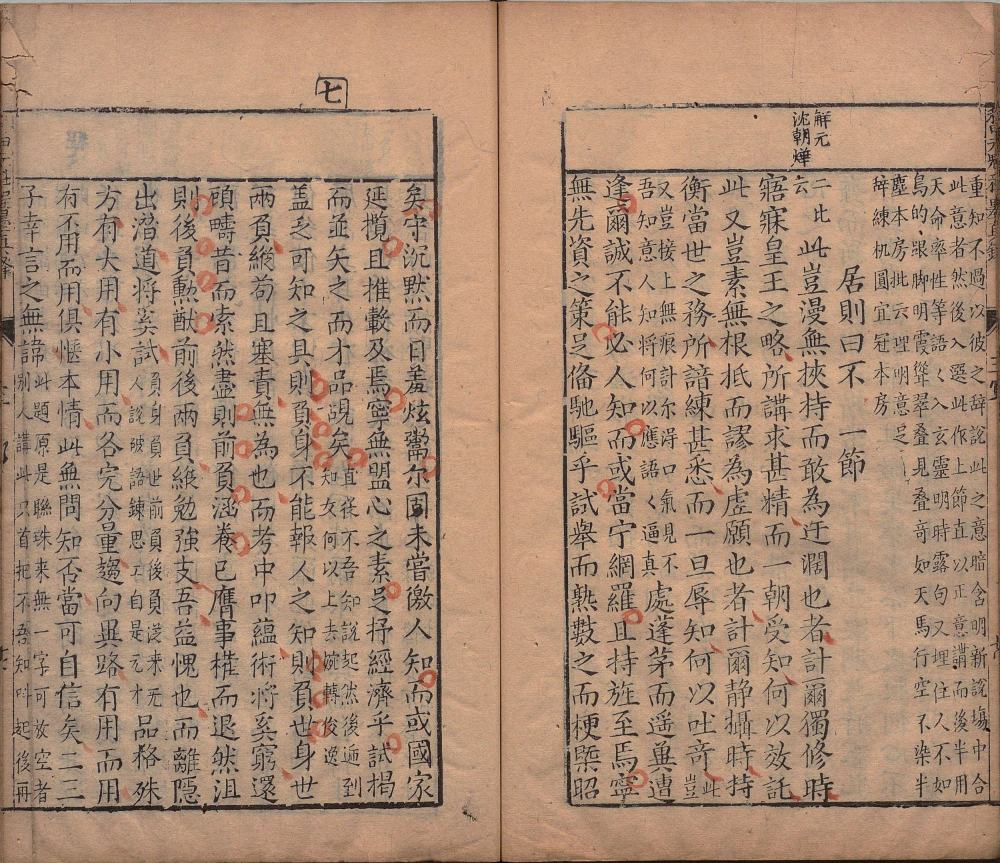 重知不過以彼之辭說此之意暗含明新說塲中合
此意者然後入選此作上節直以正意講而後半用
天命率性等語く入玄靈明時露句又埋住人不如
鳥的眼脚明霞聳翠叠見叠奇如天馬行空不染半
塵本房批云理明意足
辭練机圓宜冠本房
居則曰不 一節
解元
沈朝燁
二比
云
此豈漫無挾持而敢為迂濶也者計爾獨修時
寤寐皇王之略所講求甚精而一朝受知何以效託
此又豈素無根抵而謬為虛願也者計爾静攝時持
衡當世之務所諳練甚悉而一旦辱知何以吐奇此豈
又豈接上無痕計尔淂口氣見不
吾知意人知將何以應語く逼真
處蓬茅而遥無遭
逢爾誠不能必人知而或當宁網羅且持旌至焉寧
無先資之策足俻馳驅乎試舉而熟數之而梗槩昭
七
矣守沉默而日羞炫鬻尔固未嘗徼人知而或國家
延攬且推轂及焉寧無盟心之素足抒經濟乎試揭
而並矢之而才品覘矣
直從不吾知說起然後逓到
如知女何以上去婉轉俊逸
盖乏可知之具則負身不能報人之知則負世身世
兩負縱苟且塞責無為也而考中叩蘊術將奚窮還
頭疇昔而索然盡則前負涵養已膺事權而退然沮
則後負勲猷前後兩負維勉強支吾益愧也而離隱
出潛道將奚試
負身負世前負後負淺来无
人說破語鍊思工自是元才
品格殊
方有大用有小用而各完分量趨向異路有用而用
有不用而用俱愜本情此無問知否當可自信矣二三
子幸言之無諱
此題原是聯珠来無一字可放空者
别人講此只首把不吾知呌起後再